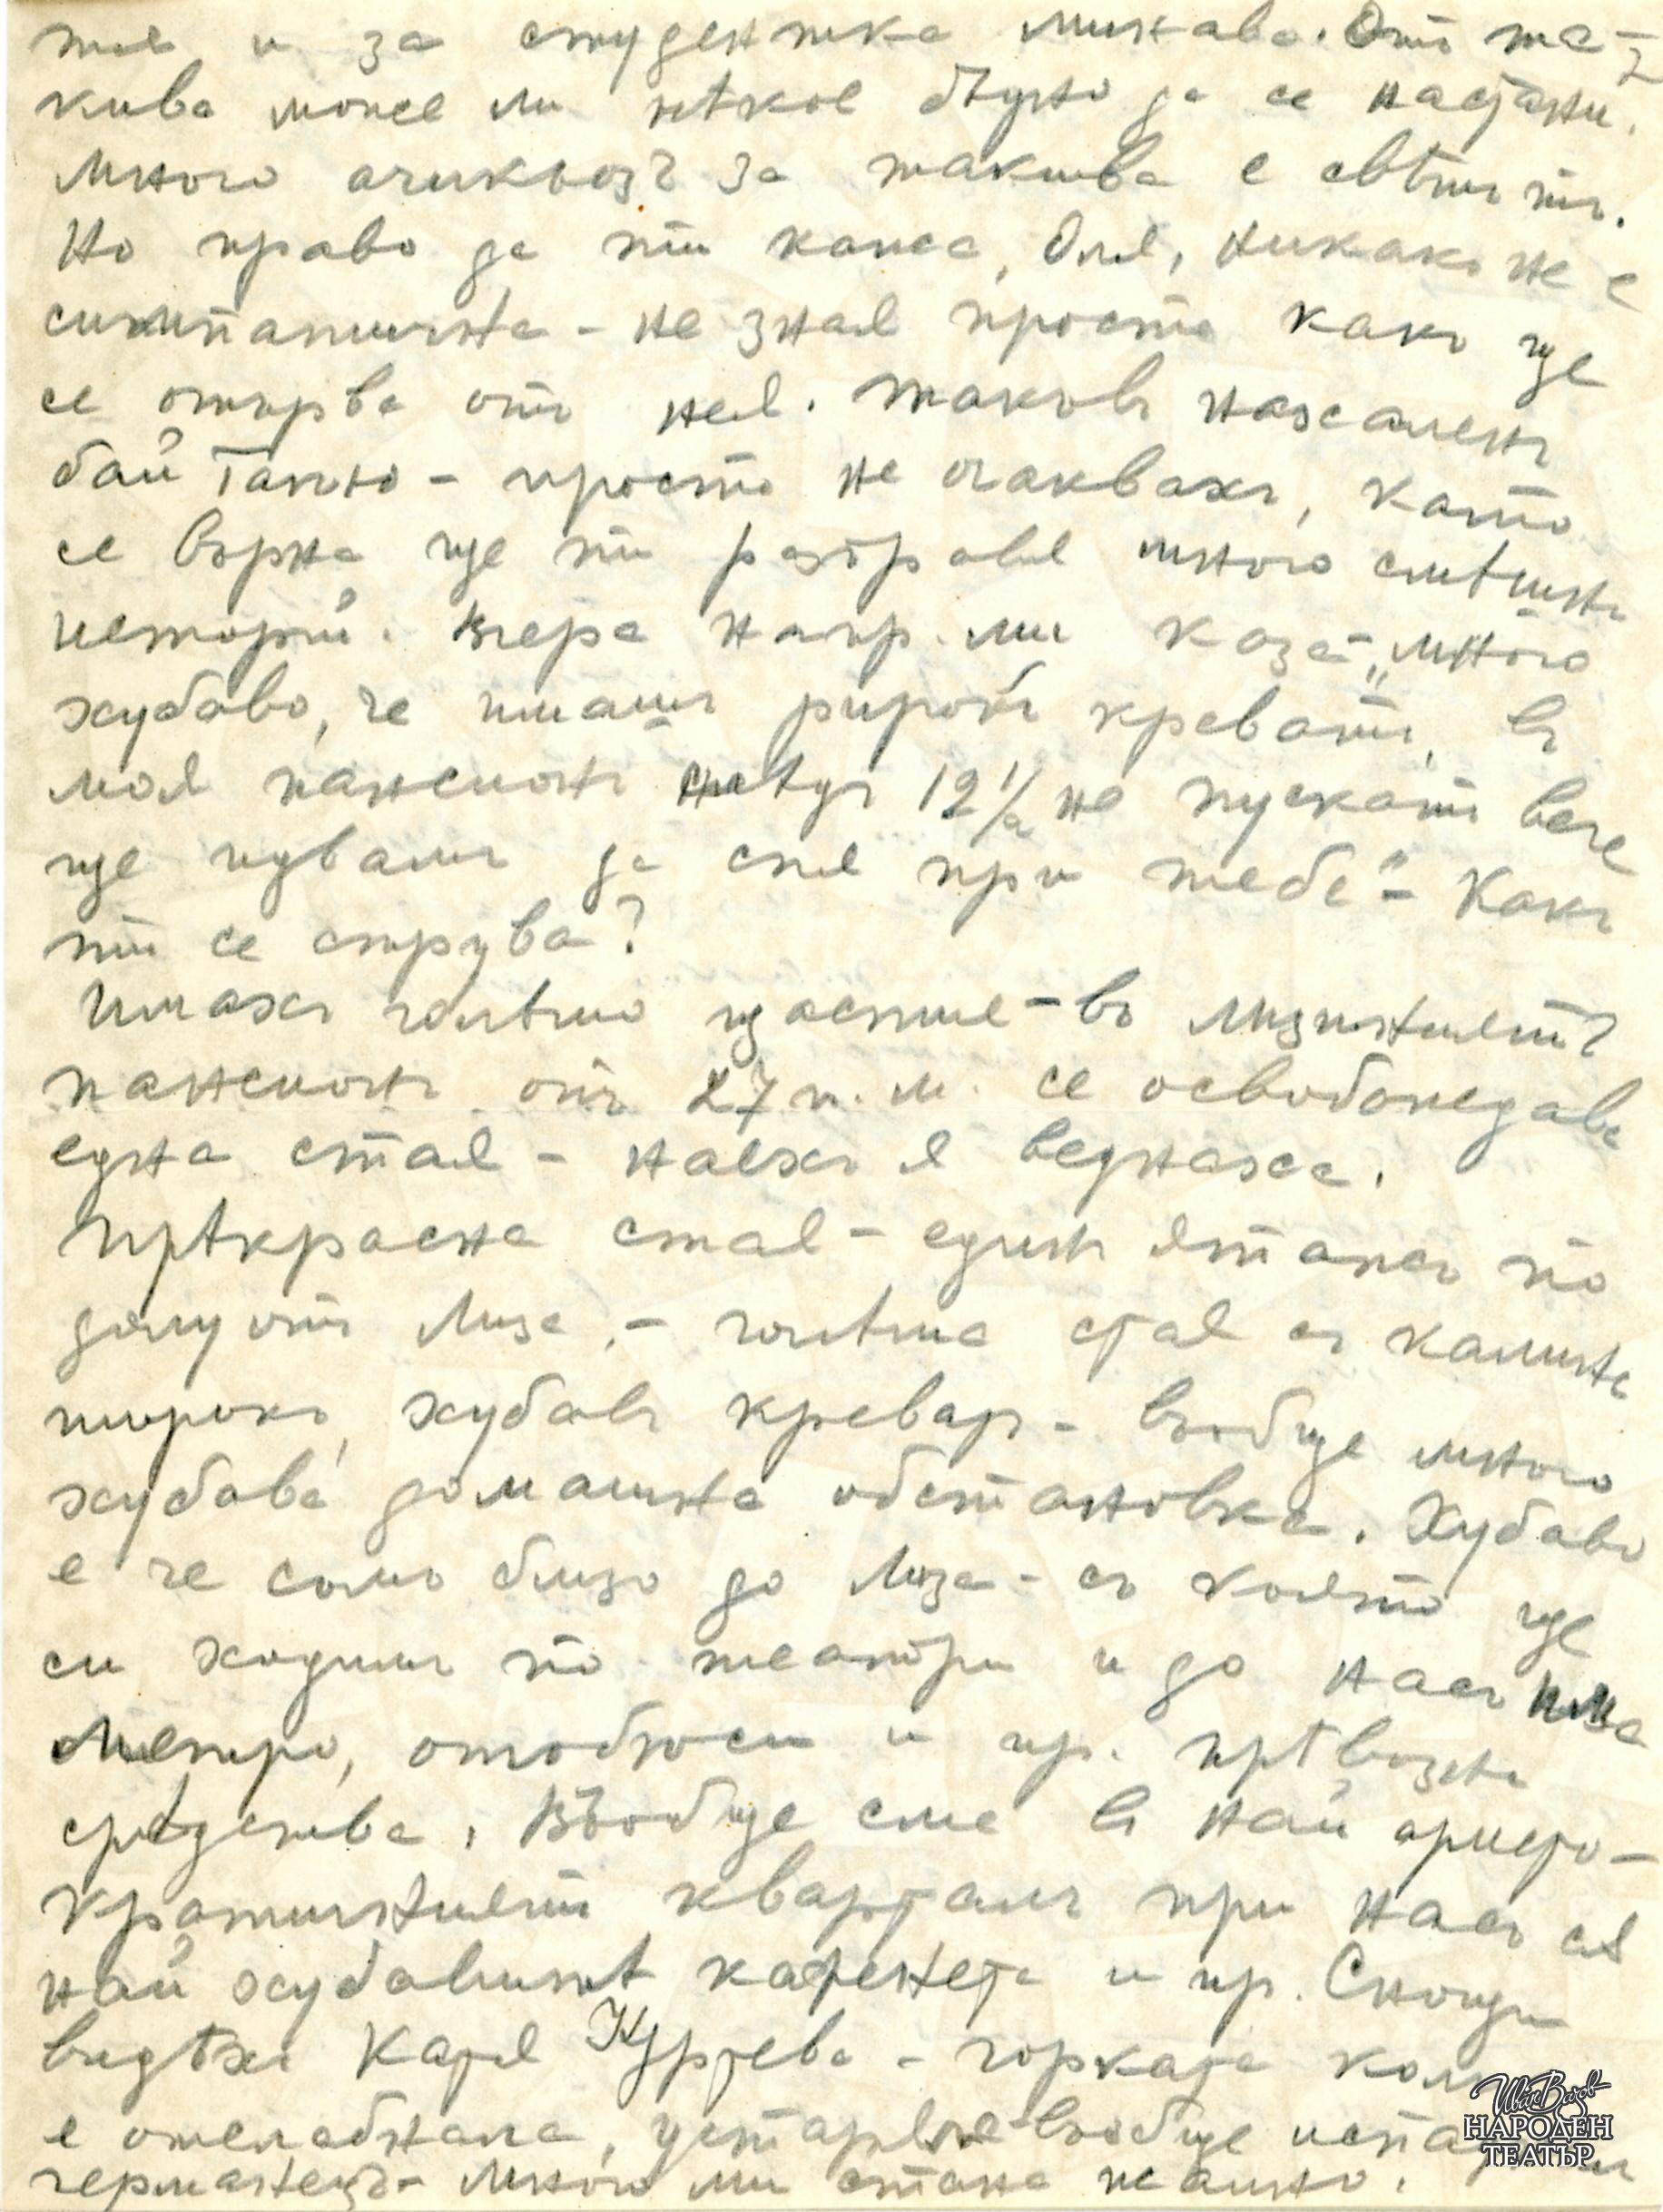 тя и за студентка минава. Отъ та-
кива може ли нѣкое бѣдно да се настани.
Много ачикьозъ за такива е свѣтътъ.
Но право да ти кажа, Оля, никакъ не е
симпатична - не зная просто какъ ще
се отърва отъ нея. Такъвъ нахаленъ
бай Ганьо - просто не очаквахъ, като
се върна ще ти разправя много смѣшни
истории. Вчера напр. ми каза „много
хубаво, че имашъ широкъ креватъ, въ
моя пансионъ слѣдъ 12 1/2 не пускатъ вече
ще идвамъ да спя при тебе" - Какъ
ти се струва?
Имахъ голѣмо щастие - въ Лизиниятъ
пансионъ отъ 27 т. м. се освобождава
една стая - наехъ я веднага.
Прѣкрасна стая - единъ етажъ по
долу отъ Лиза, - голѣма стая съ камина
широкъ, хубавъ креватъ - въобще много
хубава домашна обстановка. Хубаво
е че съмъ близо до Лиза - съ която ще
си ходимъ по театри и до насъ има
Метро, отобюси и пр. прѣвозни
срѣдства. Въобще сме въ най аристо-
кратичниятъ кварталъ при насъ сѫ
най хубавитѣ кафенета и пр. Снощи
видѣхъ Катя Куртева - горката
е отслабнала, устарѣла въобще
германецъ - много ми стана жално.
Иван Вазов
НАРОДЕН
ТЕАТЪР